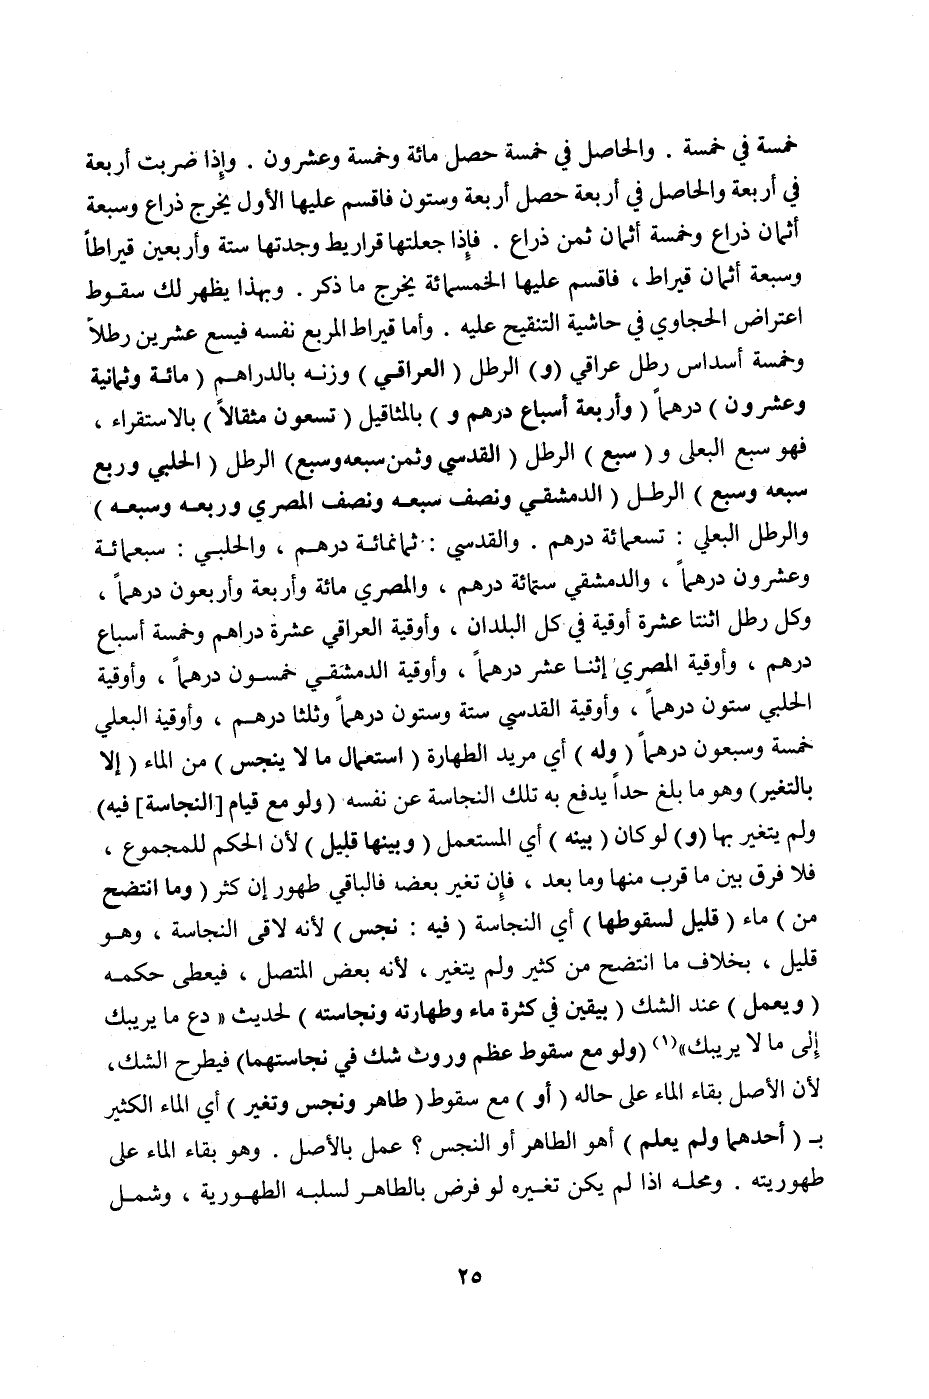 خمسة في خمسة . والحاصل في خمسة حصل مائة وخمسة وعشرون . وإذا ضربت أربعة
في أربعة والحاصل في أربعة حصل أربعة وستون فاقسم عليها الأول يخرج ذراع وسبعة
أثمان ذراع وخمسة أثمان ثمن ذراع . فإذا جعلتها قراريط وجدتها ستة وأربعين قيراطاً
وسبعة أثمان قيراط ، فاقسم عليها الخمسمائة يخرج ما ذكر . وبهذا يظهر لك سقوط
اعتراض الحجاوي في حاشية التنقيح عليه . وأما قيراط المربع نفسه فيسع عشرين رطلاً
وخمسة أسداس رطل عراقي (و) الرطل ( العراقي ) وزنه بالدراهم ( مائة وثمانية
وعشرون ) درهماً ( وأربعة أسباع درهم و ) بالمثاقيل ( تسعون مثقالاً ) بالاستقراء ،
فهو سبع البعلى و ( سبع ) الرطل ( القدسي وثمن سبعه وسبع) الرطل ( الحلبي وربع
سبعه وسبع ) الرطل ( الدمشقي ونصف سبعه ونصف المصري وربعه وسبعه )
والرطل البعلي : تسعمائة درهم . والقدسي : ثمانمائة درهم ، والحلبي : سبعمائة
وعشرون درهماً ، والدمشقي ستمائة درهم ، والمصري مائة وأربعة وأربعون درهماً ،
وكل رطل اثنتا عشرة أوقية في كل البلدان ، وأوقية العراقي عشرة دراهم وخمسة أسباع
درهم ، وأوقية المصري إثنا عشر درهماً ، وأوقية الدمشقي خمسون درهماً ، وأوقية
الحلبي ستون درهماً ، وأوقية القدسي ستة وستون درهماً وثلثا درهم ، وأوقية البعلي
خمسة وسبعون درهماً ( وله ) أي مريد الطهارة ( استعمال ما لا ينجس ) من الماء ( إلا
بالتغير) وهو ما بلغ حداً يدفع به تلك النجاسة عن نفسه ( ولو مع قيام [النجاسة] فيه)
ولم يتغير بها (و) لو كان ( بينه ) أي المستعمل ( وبينها قليل ) لأن الحكم للمجموع ،
فلا فرق بين ما قرب منها وما بعد ، فإن تغير بعضه فالباقي طهور إن كثر ( وما انتضح
من ) ماء ( قليل لسقوطها ) أي النجاسة ( فيه : نجس ) لأنه لاقى النجاسة ، وهو
قليل ، بخلاف ما انتضح من كثير ولم يتغير ، لأنه بعض المتصل ، فيعطى حكمه
( ويعمل ) عند الشك ( بيقين في كثرة ماء وطهارته ونجاسته ) لحديث « دع ما يريبك
إلى ما لا يريبك»(١) (ولو مع سقوط عظم وروث شك في نجاستهما) فيطرح الشك،
لأن الأصل بقاء الماء على حاله ( أو ) مع سقوط ( طاهر ونجس وتغير ) أي الماء الكثير
بـ ( أحدهما ولم يعلم ) أهو الطاهر أو النجس ؟ عمل بالأصل . وهو بقاء الماء على
طهوريته . ومحله اذا لم يكن تغيره لو فرض بالطاهر لسلبه الطهورية ، وشمل
٢٥